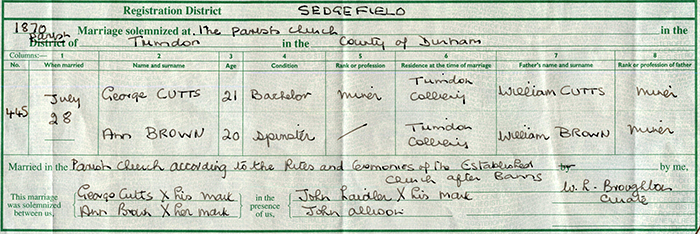 Registration District SEDGEFIELD
1870 Marriage solemnized at The Parish Church in the
Parish District of Trimdon in the County of Durham
Columns:— 1 2 3 4 5 6 7 8
No. When married Name and surname Age Condition Rank or profession Residence at the time of marriage Father's name and surname Rank or profession of father
445 July 28 George CUTTS 21 Bachelor Miner Trimdon Colliery William CUTTS Miner
Ann BROWN 20 Spinster / Trimdon Colliery William BROWN Miner
Married in the Parish Church according to the Rites and Ceremonies of the Established Church after Banns by by me,
This marriage was solemnized between us,
George Cutts X his mark
Ann Brown X her mark
in the presence of us,
John X his mark
John Allison
W. L. Broughton
Curate